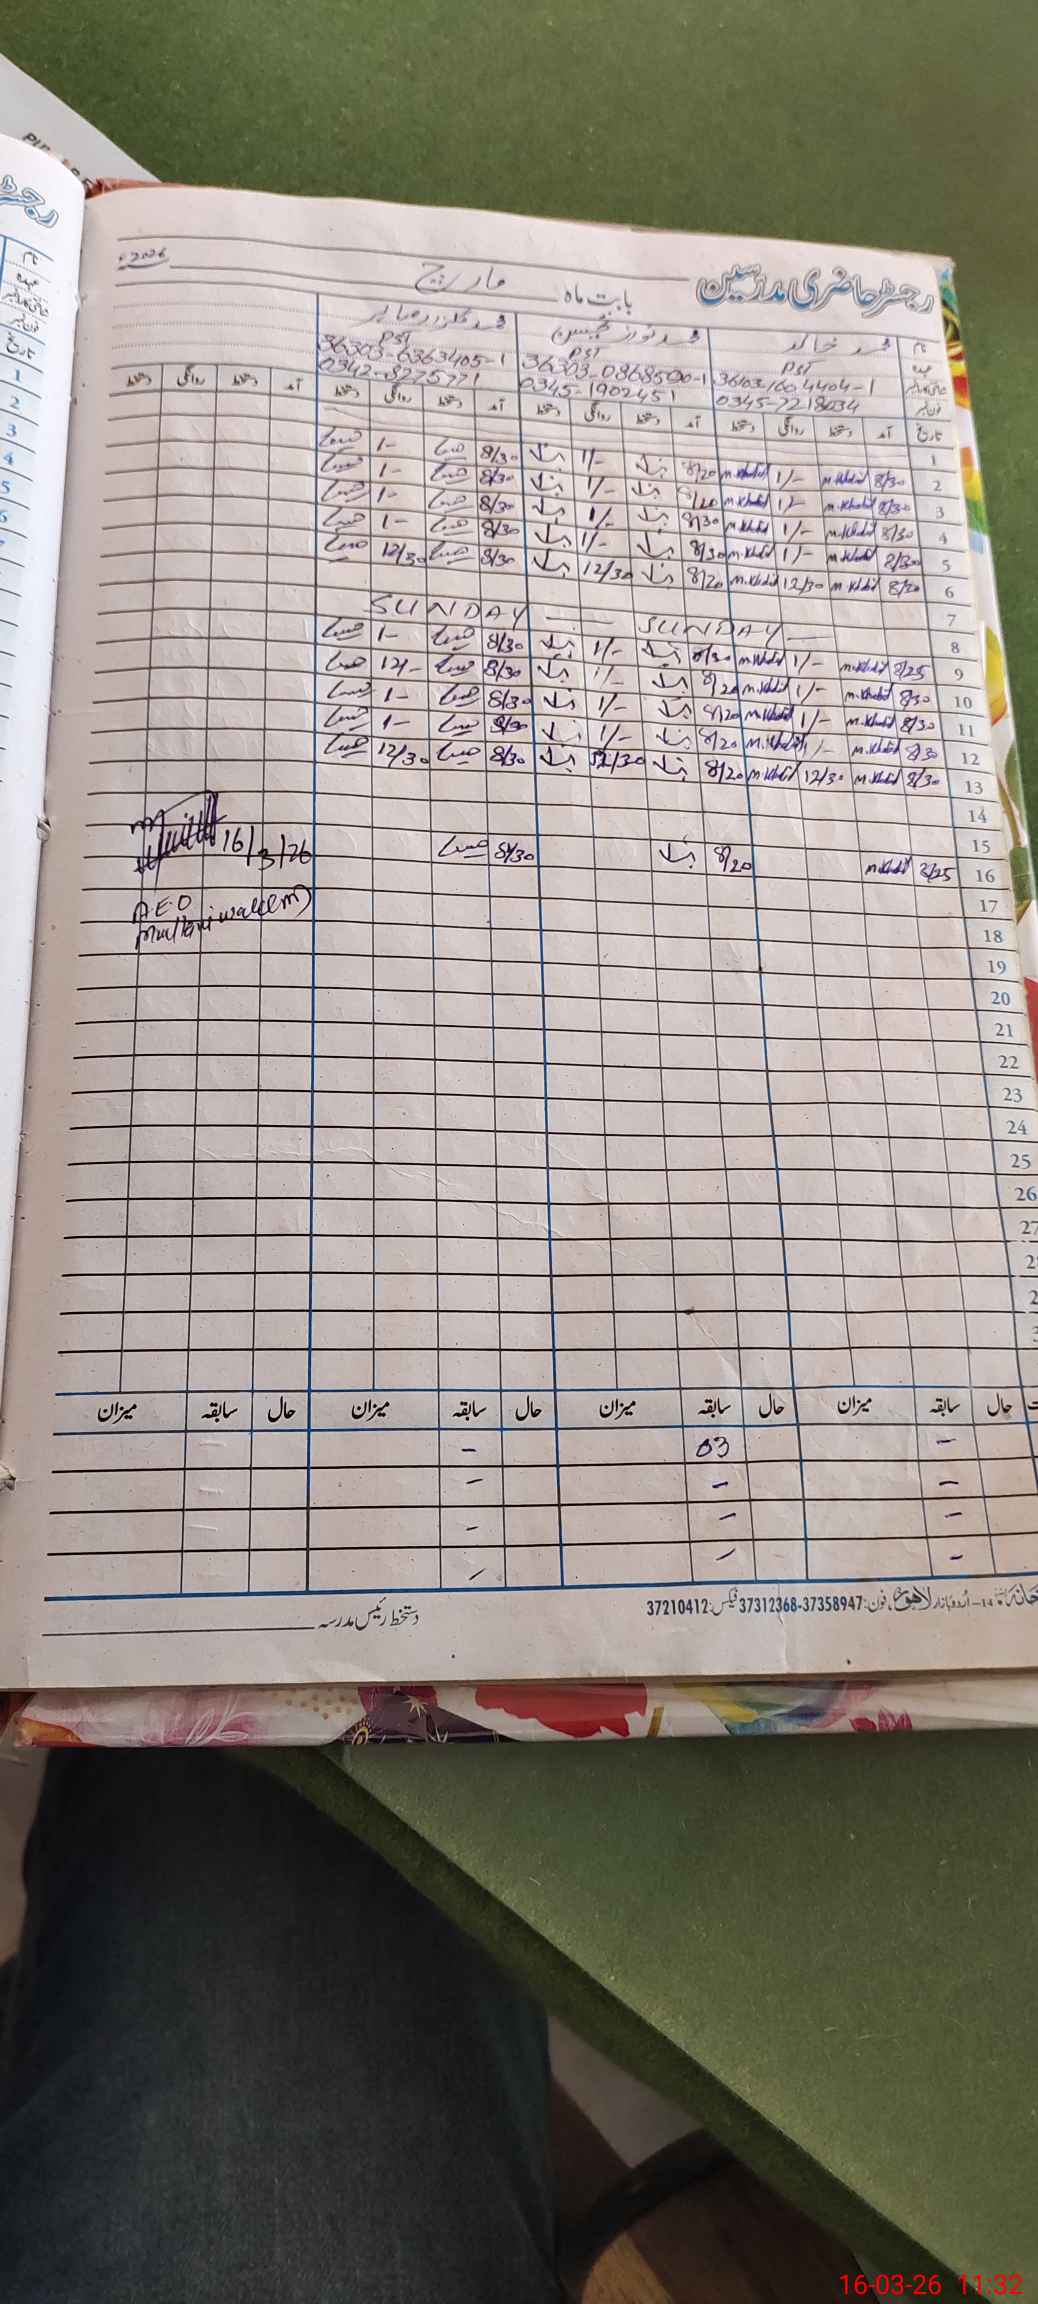 رجسٹر حاضری مدرسین
بابت ماہ مارچ 2026ء
نام محمد خالد محمد نواز
عہدہ PST PST PST
36103-1604404-1 36303-0868500-1 36303-6363405-1
فون نمبر 0345-7218034 0345-1902451 0342-8275771
تاریخ آمد دستخط روانگی دستخط آمد دستخط روانگی دستخط آمد دستخط روانگی دستخط آمد دستخط روانگی دستخط
1
2 8/30 M.Khalid 1/- M.Khalid 8/20 1/- 8/30 1-
3 8/30 M.Khalid 1/- M.Khalid 8/20 1/- 8/30 1-
4 8/30 M.Khalid 1/- M.Khalid 8/30 1/- 8/30 1-
5 8/30 M.Khalid 1/- M.Khalid 8/30 1/- 8/30 1-
6 8/30 M.Khalid 12/30 M.Khalid 8/20 12/30 8/30 12/30
7
8 SUNDAY SUNDAY
9 8/25 M.Khalid 1/- M.Khalid 8/30 1/- 8/30 1-
10 8/30 M.Khalid 1/- M.Khalid 8/20 1/- 8/30 12/-
11 8/30 M.Khalid 1/- M.Khalid 8/20 1/- 8/30 1-
12 8/30 M.Khalid 1/- M.Khalid 8/20 1/- 8/30 1-
13 8/30 M.Khalid 12/30 M.Khalid 8/20 12/30 8/30 12/30
14
15
16 8/25 M.Khalid 8/20 8/30
16/3/26
A.E.O
Multaniwala (M)
17
18
19
20
21
22
23
24
25
26
27
حال سابقہ میزان حال سابقہ میزان حال سابقہ میزان حال سابقہ میزان
- 03 - -
- - - -
- - -
- - -
اردو بازار لاہور، فون: 37312368-37358947 فیکس: 37210412
دستخط رئیس مدرسہ
16-03-26 11:32